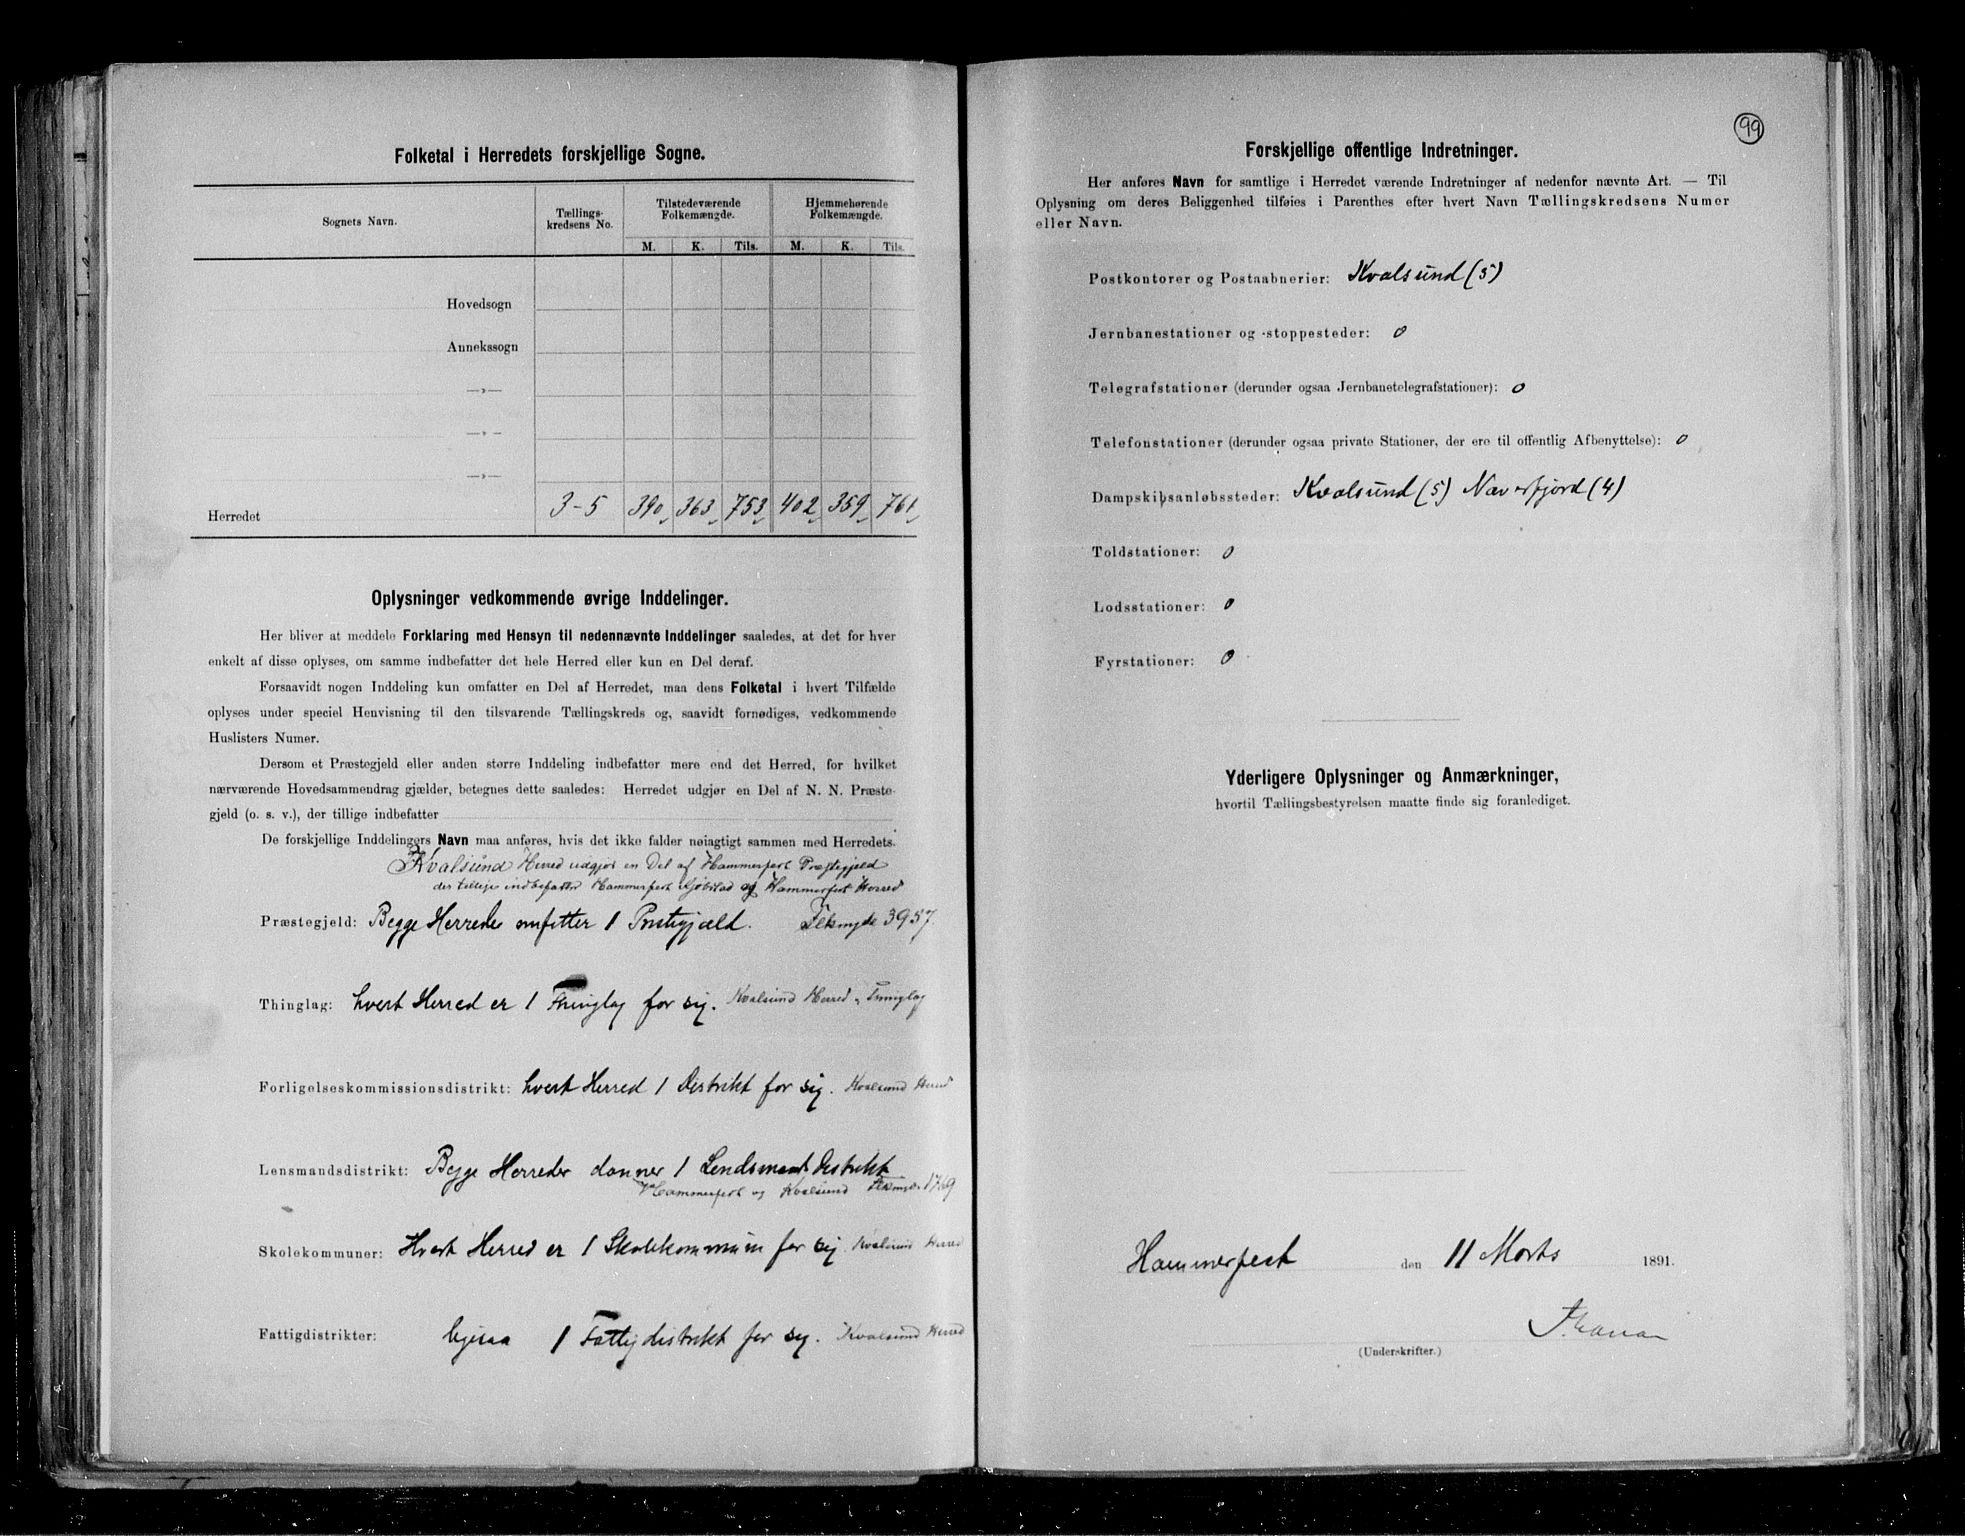 Folketal i Herredets forskjellige Sogne.
Sognets Navn.
Tællings-
kredsens No.
Tilstedeværende
Folkemængde.
Hjemmehørende
Folkemængde.
M. K. Tils. M. K. Tils.
Hovedsogn
Annekssogn
—»—
—»—
—»—
Herredet 3-5 390 363 753 402 359 761
Oplysninger vedkommende øvrige Inddelinger.
Her bliver at meddele Forklaring med Hensyn til nedennævnte Inddelinger saaledes, at det for hver
enkelt af disse oplyses, om samme indbefatter det hele Herred eller kun en Del deraf.
Forsaavidt nogen Inddeling kun omfatter en Del af Herredet, maa dens Folketal i hvert Tilfælde
oplyses under speciel Henvisning til den tilsvarende Tællingskreds og, saavidt fornødiges, vedkommende
Huslisters Numer.
Dersom et Præstegjeld eller anden større Inddeling indbefatter mere end det Herred, for hvilket
nærværende Hovedsammendrag gjælder, betegnes dette saaledes: Herredet udgjør en Del af N. N. Præste-
gjeld (o. s. v.), der tillige indbefatter
De forskjellige Inddelingers Navn maa anføres, hvis det ikke falder nøiagtigt sammen med Herredets.
Kvalsund Herred udgjør en Del af Hammerfest Præstegjeld
der tillige indbefatter Hammerfest Kjøbstad og Hammerfest Herred
Præstegjeld: Begge Herreder omfatter 1 3957.
Thinglag: hvert Herred er 1 Thinglag for sig. Kvalsund Herred Thinglag
Forligelseskommissionsdistrikt: hvert Herred 1 Distrikt for sig. Kvalsund Herred
Lensmandsdistrikt: Begge Herreder danner 1 Lendsmandsdistrikt
Hammerfest og Kvalsund 1769
Skolekommuner: Hvert Herred er 1 Skolekommun for sig. Kvalsund Herred
Fattigdistrikter: ligesaa 1 Fattigdistrikt for sig. Kvalsund Herred
99
Forskjellige offentlige Indretninger.
Her anføres Navn for samtlige i Herredet værende Indretninger af nedenfor nævnte Art. — Til
Oplysning om deres Beliggenhed tilføies i Parenthes efter hvert Navn Tællingskredsens Numer
eller Navn.
Postkontorer og Postaabnerier: Kvalsund (5)
Jernbanestationer og -stoppesteder: 0
Telegrafstationer (derunder ogsaa Jernbanetelegrafstationer): 0
Telefonstationer (derunder ogsaa private Stationer, der ere til offentlig Afbenyttelse): 0
Dampskibsanløbssteder: Kvalsund (5) Naverfjord (4)
Toldstationer: 0
Lodsstationer: 0
Fyrstationer: 0
Yderligere Oplysninger og Anmærkninger,
hvortil Tællingsbestyrelsen maatte finde sig foranlediget.
Hammerfest den 11 Marts 1891.
(Underskrifter.)